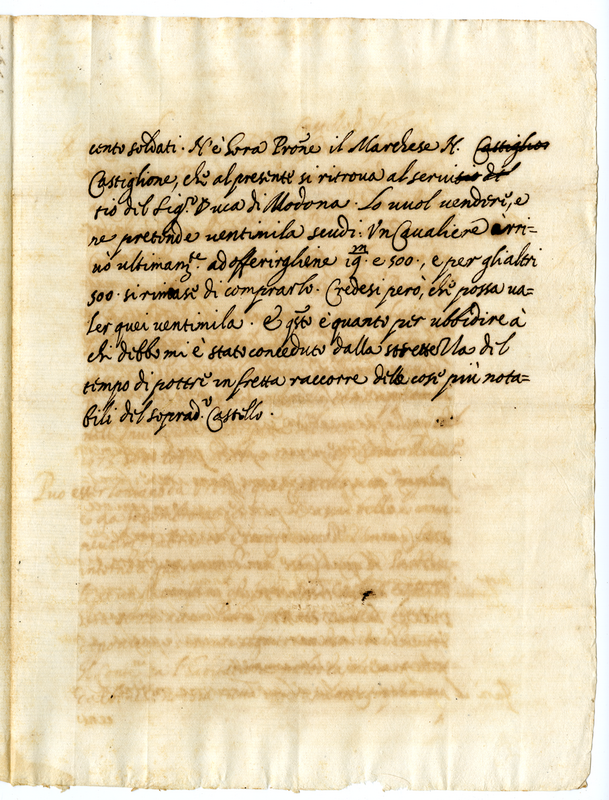 cento soldati. N'è hora Prōne il Marchese N. Castiglion
Castiglione, che al presente si ritrova al servi
tio del Sig.r Duca di Modona. Lo vuol vendere, e
ne pretende ventimila scudi. Vn Cavaliere arri=
uò ultimam.te ad offerirgliene 19 m e 500., e per gli altri
500. si rimase di comprarlo. Credesi però, che possa ua=
ler quei ventimila. E q̄sto è quanto per ubbidire à
chi debbo mi è stato conceduto dalla strettezza del
tempo di potere in fretta raccorre delle cose più nota=
bili del soprad.o Castello.